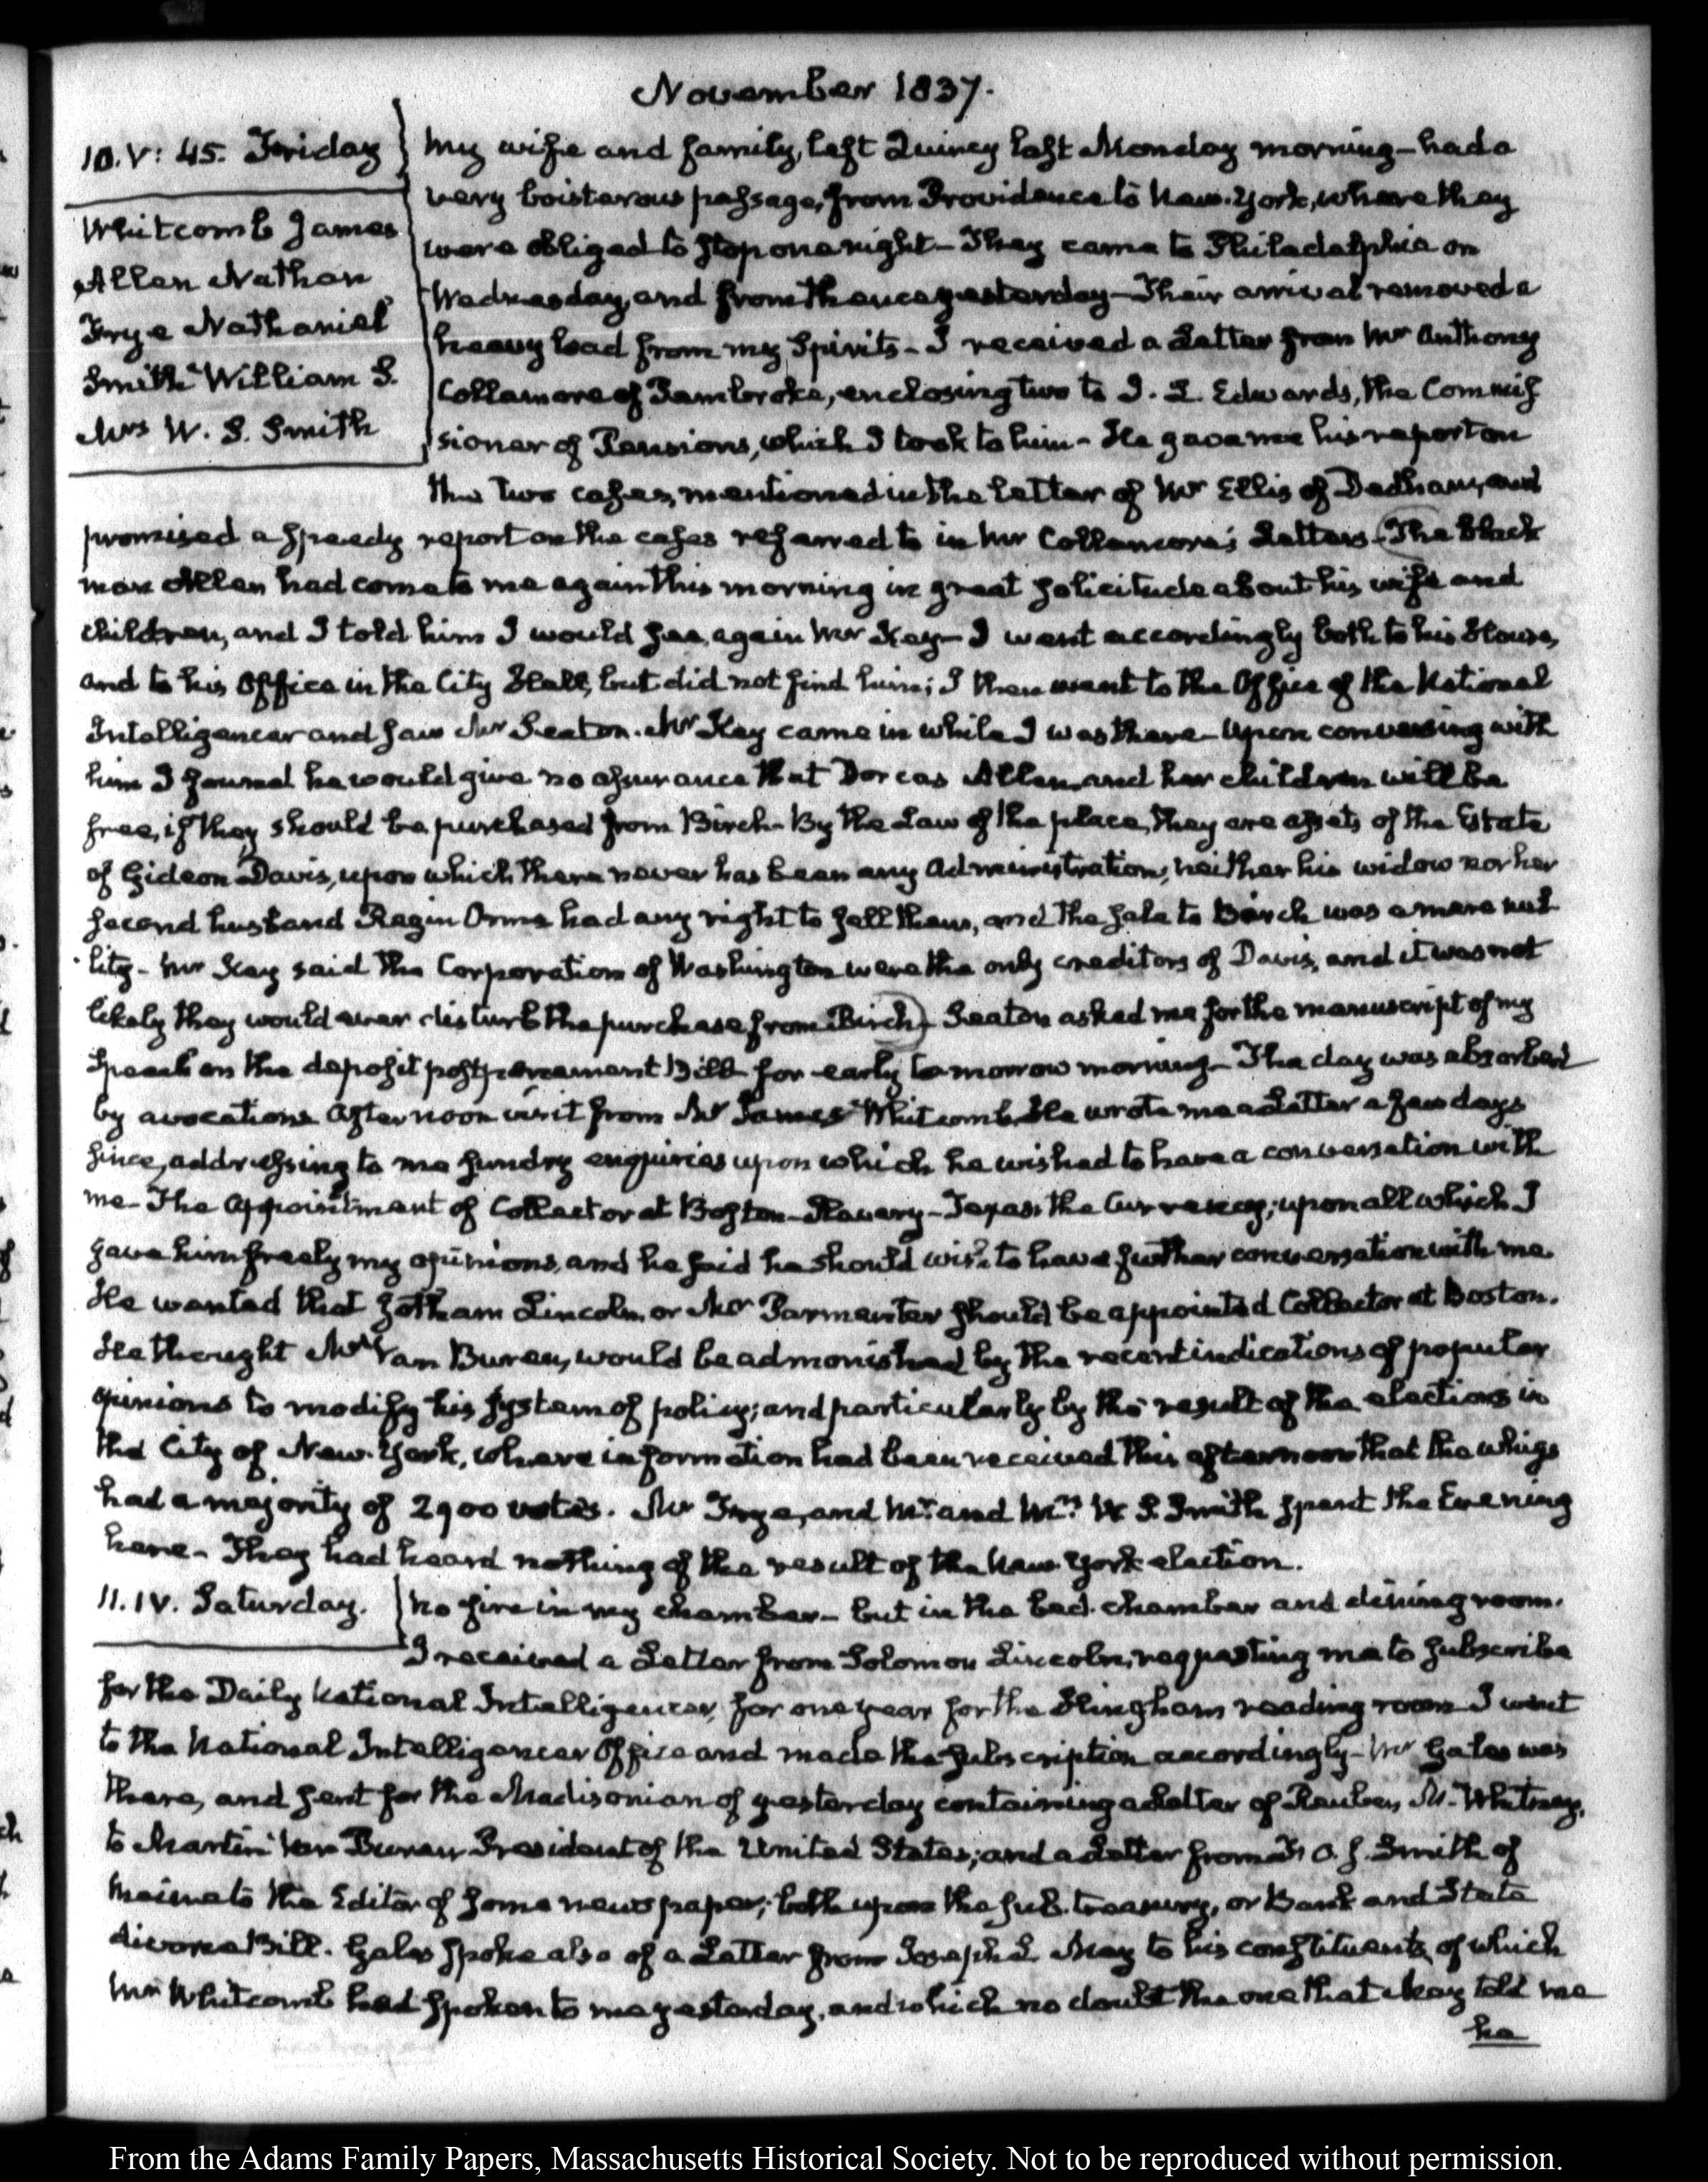 November 1837.
10. V: 45. Friday
Whitcomb James
Allen Nathan
Frye Nathaniel
Smith William S.
Mrs W. S. Smith
My wife and family, left Quincy last Monday morning — had a
very boisterous passage, from Providence to New-York, where they
were obliged to stop one night — They came to Philadelphia on
Wednesday, and from thence yesterday — Their arrival removed a
heavy load from my Spirits — I received a Letter from Mr Anthony
Collamore of Pembroke, enclosing two to J. L. Edwards, the Commis
sioner of Pensions, which I took to him — He gave me his report on
the two cases, mentioned in the Letter of Mr Ellis of Dedham, and
promised a speedy report on the cases referred to in Mr Collamore's Letters — (The black
man Allen had come to me again this morning in great solicitude about his wife and
children, and I told him I would see again Mr Key — I went accordingly both to his House,
and to his Office in the City Hall, but did not find him; I then went to the Office of the National
Intelligencer and saw Mr Seaton. Mr Key came in while I was there — Upon conversing with
him I found he would give no assurance that Dorcas Allen, and her children will be
free, if they should be purchased from Birch — By the Law of the place, they are assets of the Estate
of Gideon Davis, upon which there never has been any Administration; neither his widow nor her
second husband Rezin Orme had any right to sell them, and the sale to Birch was a mere nul
lity — Mr Key said the Corporation of Washington were the only creditors of Davis, and it was not
likely they would ever disturb the purchase from Birch) — Seaton asked me for the manuscript of my
Speech on the deposit postponement Bill for early tomorrow morning — The day was absorbed
by avocations Afternoon visit from Mr James Whitcomb. He wrote me a Letter a few days
since, addressing to me sundry enquiries upon which he wished to have a conversation with
me — The Appointment of Collector at Boston — Slavery — Texas, the Currency; upon all which I
gave him freely my opinions, and he said he should wish to have further conversation with me.
He wanted that Jotham Lincoln, or Mr Parmenter should be appointed Collector at Boston.
He thought Mr Van Buren, would be admonished by the recent indications of popular
opinions to modify his system of policy; and particularly by the result of the elections in
the City of New-York, where information had been received this afternoon that the whigs
had a majority of 2900 votes. Mr Frye, and Mr. and Mrs. W. S. Smith spent the Evening
here — They had heard nothing of the result of the New-York election.
11. IV. Saturday.
No fire in my chamber — but in the bed-chamber and dining room.
I received a Letter from Solomon Lincoln, requesting me to subscribe
for the Daily National Intelligencer, for one year for the Hingham reading room — I went
to the National Intelligencer Office and made the subscription accordingly — Mr Gales was
there, and sent for the Madisonian of yesterday containing a Letter of Reuben M. Whitney,
to Martin Van Buren President of the United States; and a Letter from F. O. J. Smith of
Maine to the Editor of some newspaper; both upon the sub-treasury, or Bank and State
divorce Bill. Gales spoke also of a Letter from Joseph L May to his constituents, of which
Mr Whitcomb had spoken to me yesterday, and which no doubt the one that May told me
he